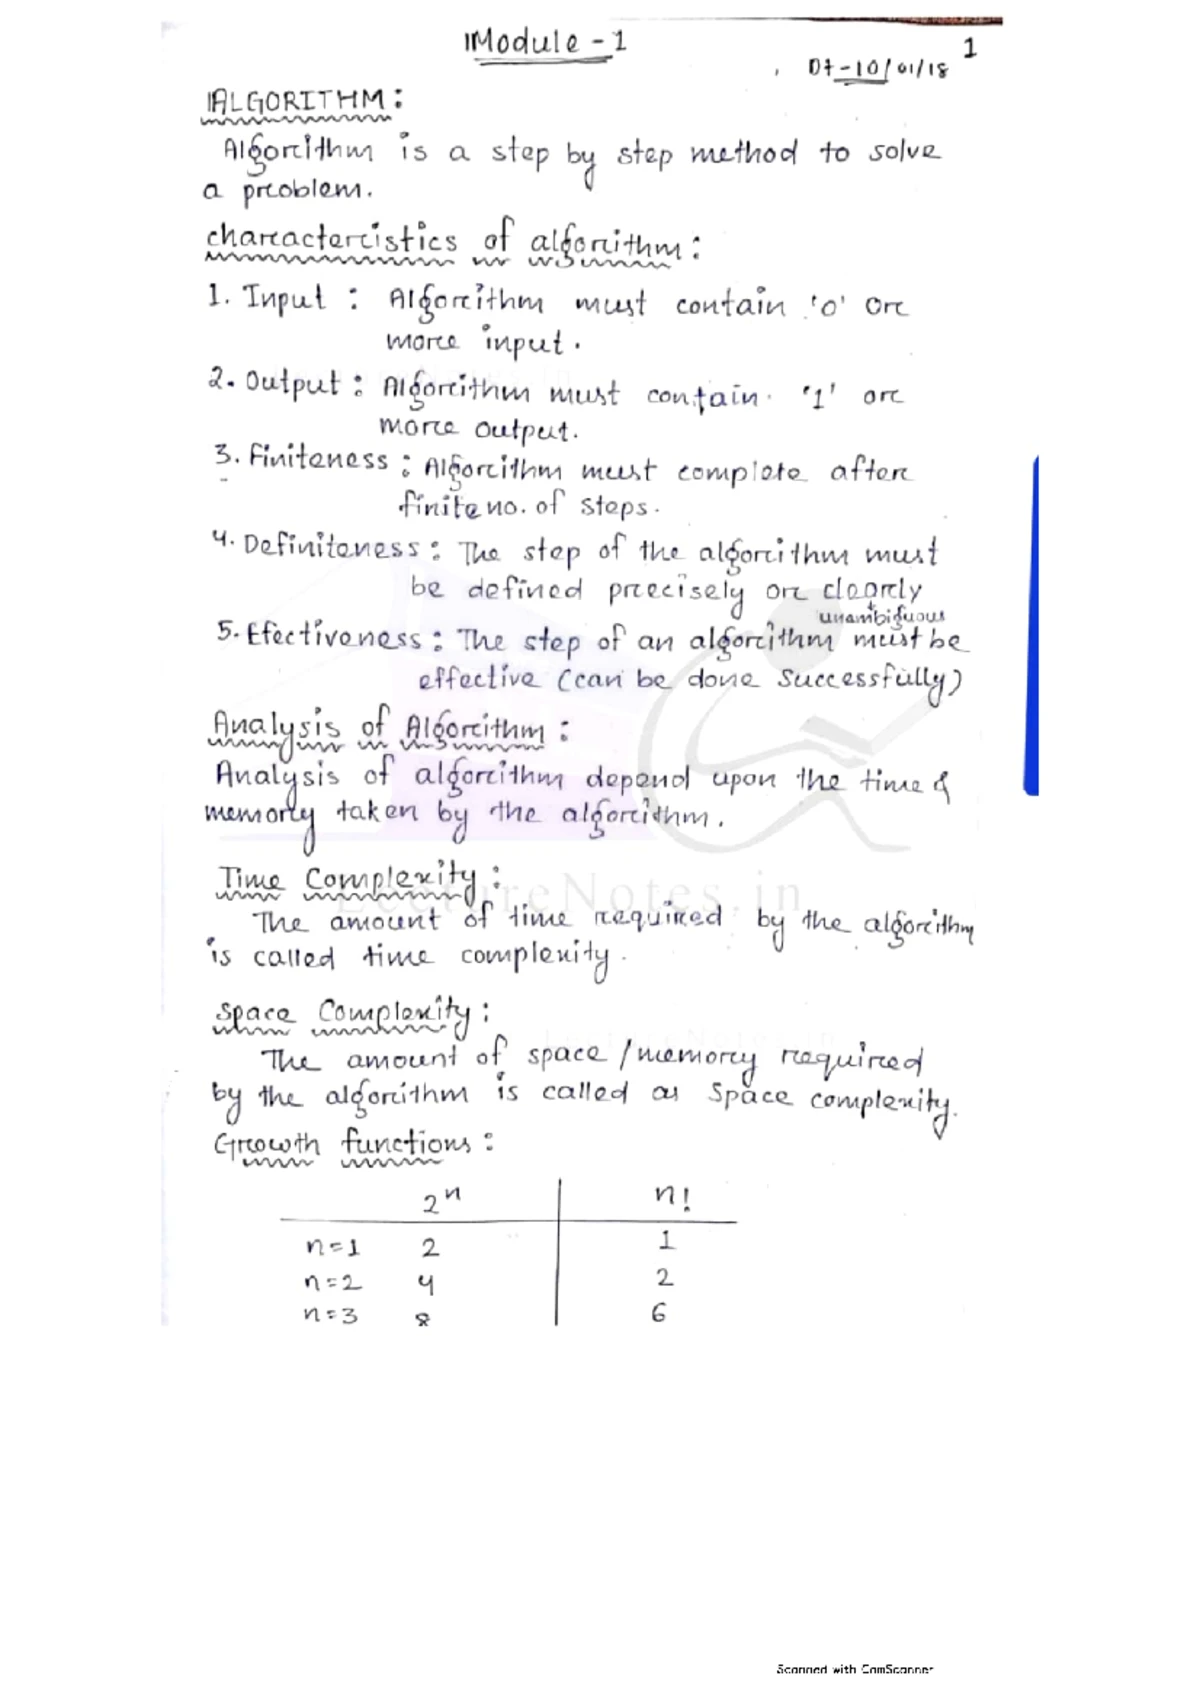 Module - 1
1
Dt-10/01/18
ALGORITHM:
Algorithm is a step by step method to solve
a problem.
characteristics of algorithm:
1. Input : Algorithm must contain '0' or
more input.
2. Output : Algorithm must contain '1' or
more output.
3. Finiteness : Algorithm must complete after
finite no. of steps.
4. Definiteness : The step of the algorithm must
be defined precisely or clearly
unambiguous
5. Efectiveness : The step of an algorithm must be
effective (can be done successfully)
Analysis of Algorithm :
Analysis of algorithm depend upon the time &
memory taken by the algorithm.
Time Complexity :
The amount of time required by the algorithm
is called time complexity.
Space Complexity :
The amount of space / memory required
by the algorithm is called as Space complexity.
Growth functions :
2^n n!
n=1 2 1
n=2 4 2
n=3 8 6
LectureNotes.in
LectureNotes.in
Scanned with CamScanner